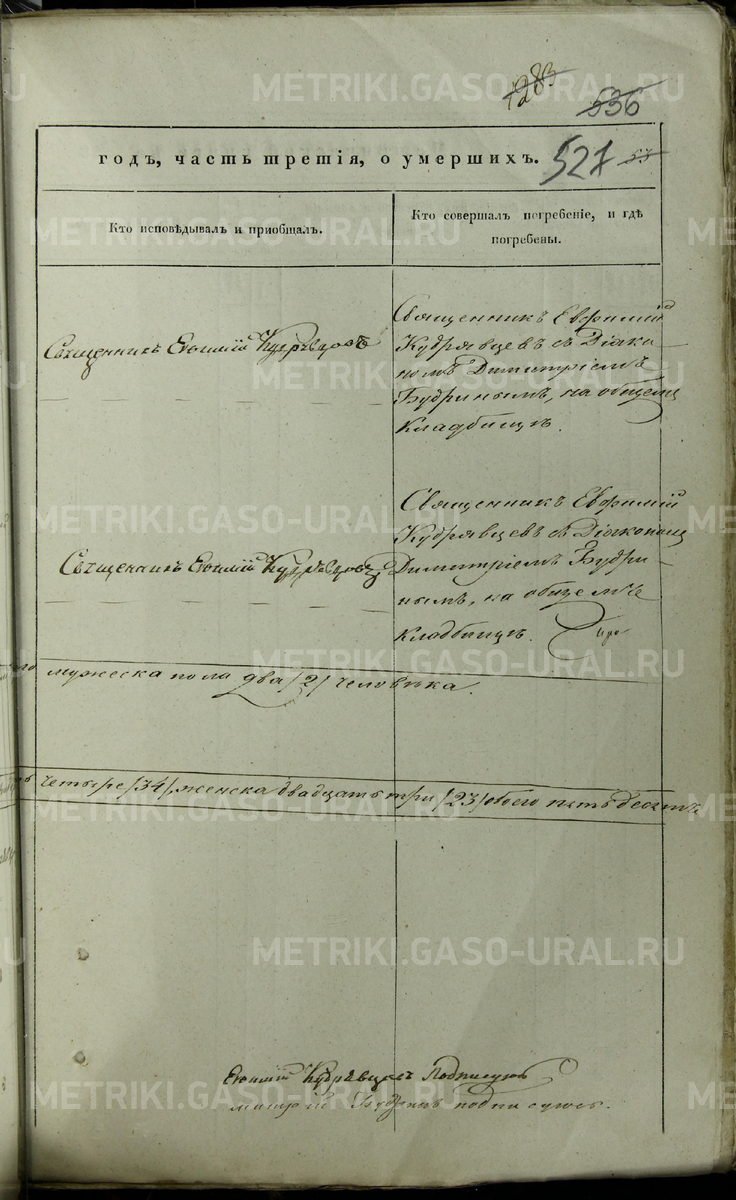 1283
536
годъ, часть третія, о умершихъ. 527 53
Кто исповѣдывалъ и приобщалъ.
Кто совершалъ погребеніе, и гдѣ
погребены.
Священникъ Евѳимій Кудрявцовъ
Священникъ Евфимій
Кудрявцевъ съ Діяко-
номъ Димитріемъ
Будринымъ, на общемъ
кладбищѣ.
Священникъ Евѳимій Кудрявцовъ
Священникъ Евфимій
Кудрявцевъ съ Діякономъ
Димитріемъ Будри-
нымъ, на общемъ
кладбищѣ.
мужеска пола два /2/ человѣка.
четыре /34/, женска двадцать три /23/ обоего пятьдесятъ
Евѳимій Кудрявцевъ Подписуюсь
Будринъ подписуюсь.
METRIKI.GASO-URAL.RU